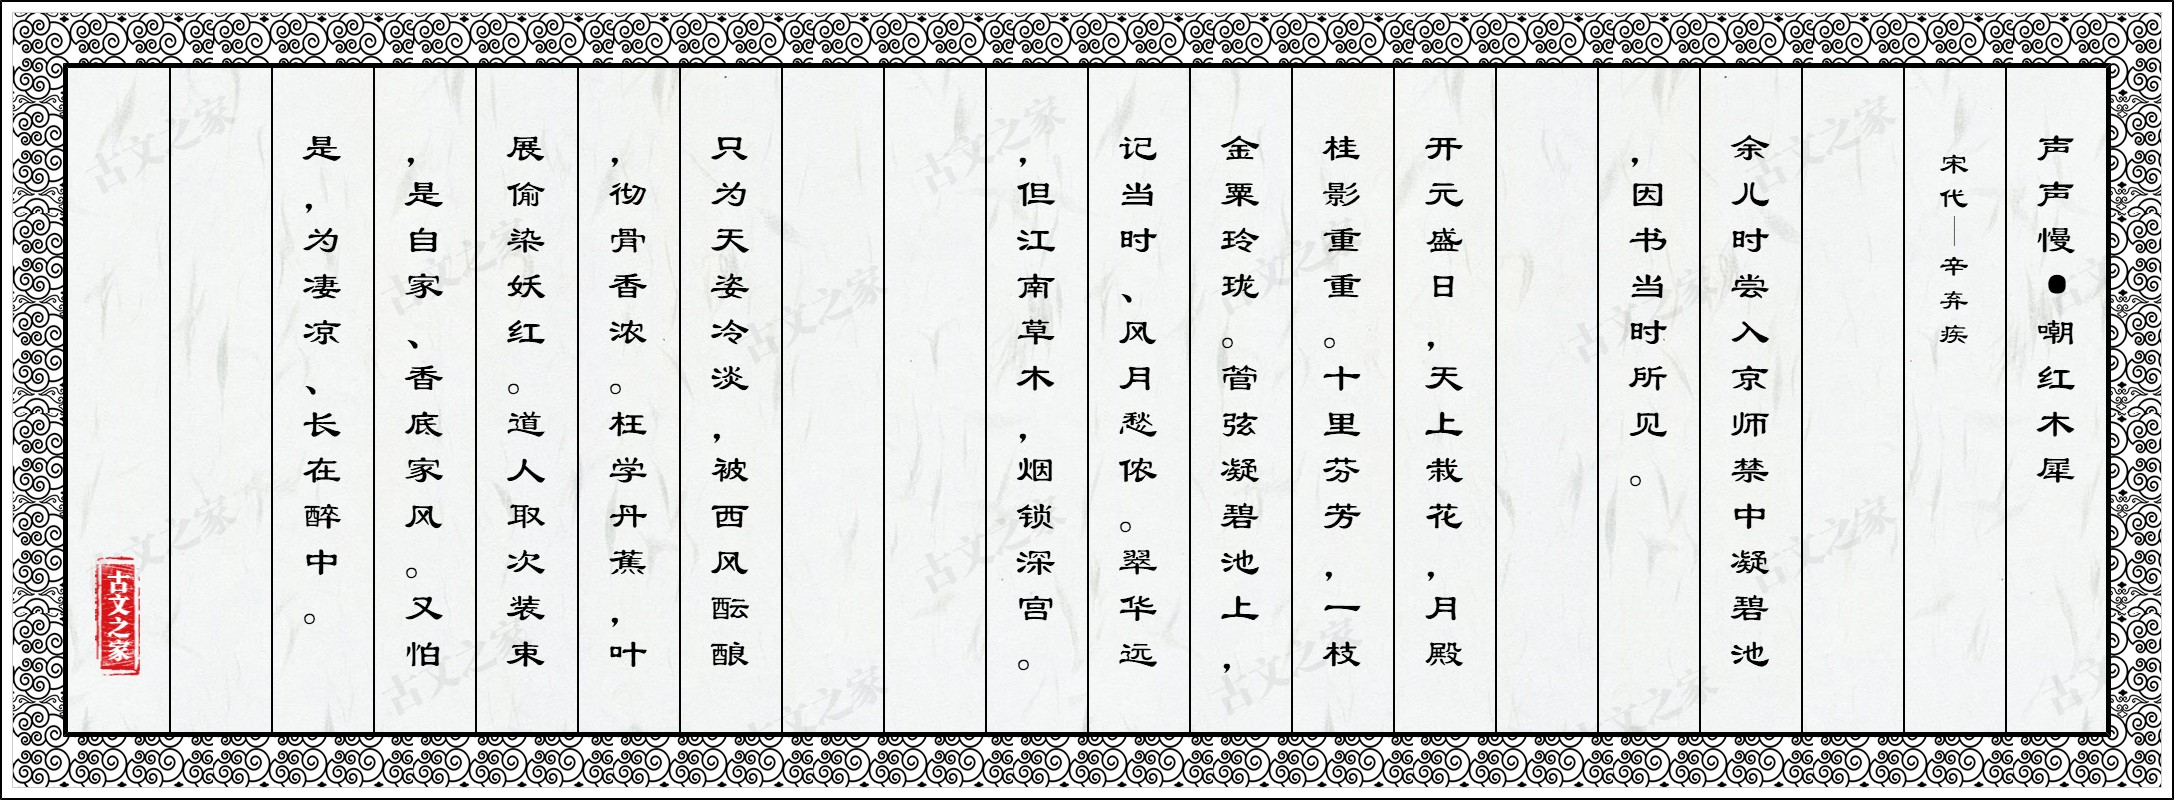 声声慢●嘲红木犀
宋代—辛弃疾
余儿时尝入京师禁中凝碧池
，因书当时所见。
开元盛日，天上栽花，月殿
桂影重重。十里芬芳，一枝
金粟玲珑。管弦凝碧池上，
记当时、风月愁侬。翠华远
，但江南草木，烟锁深宫。
只为天姿冷淡，被西风酝酿
，彻骨香浓。枉学丹蕉，叶
展偷染妖红。道人取次装束
，是自家、香底家风。又怕
是，为凄凉、长在醉中。
古文之家